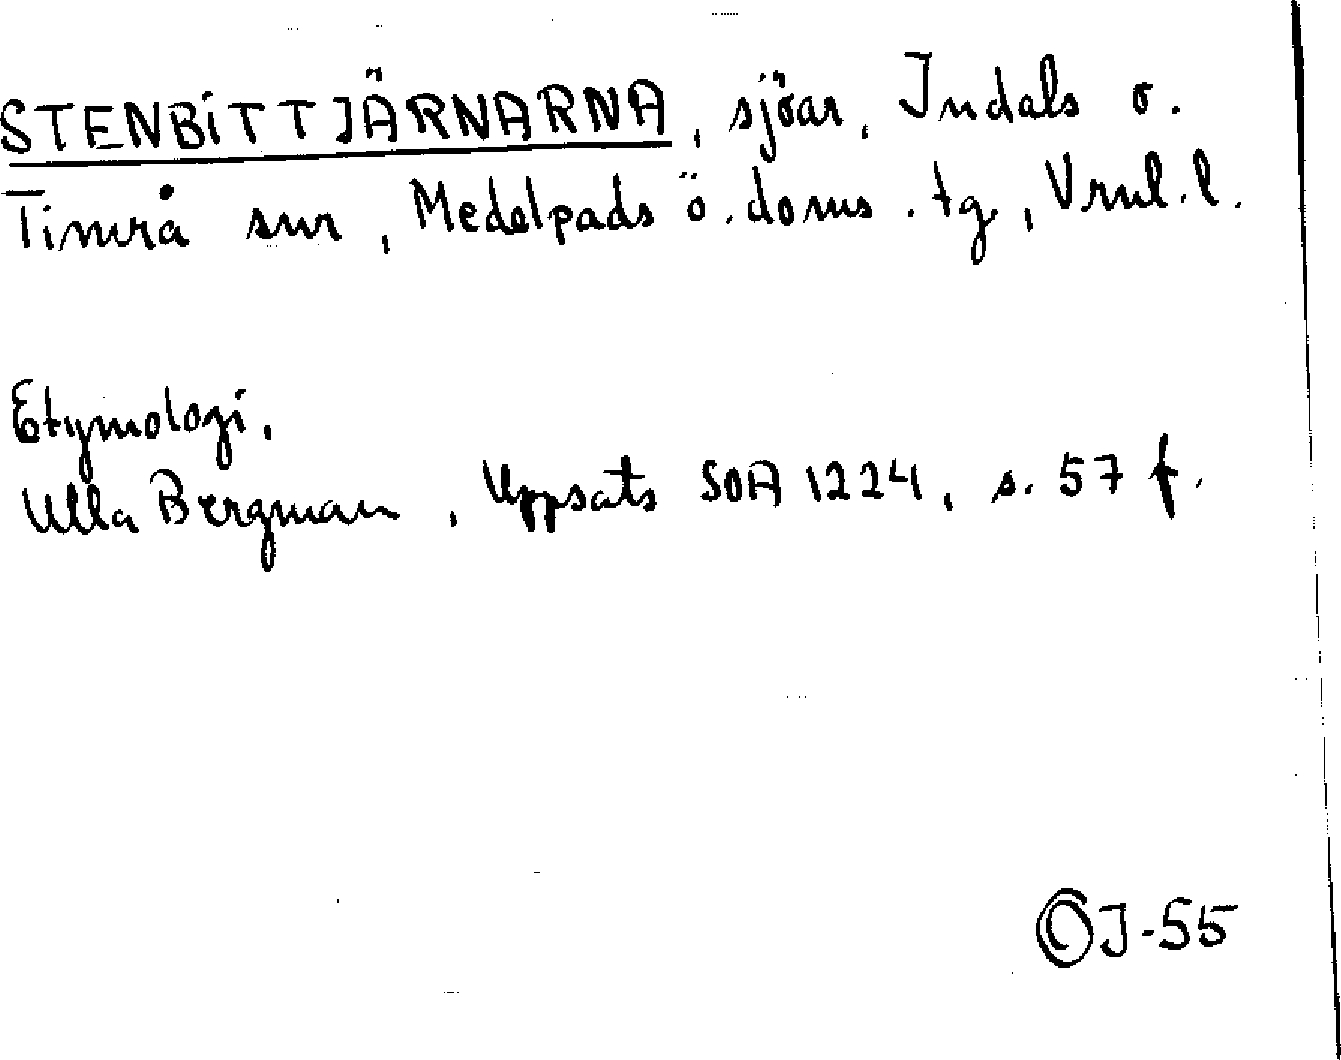 STENBITTJÄRNARNA, sjöar, Indals o.
Timrå snr, Medelpads ö. doms. tg, Vrnl. l.
Etymologi,
Ulla Bergman, Uppsats SOA 1224, s. 57 f.
OJ-55